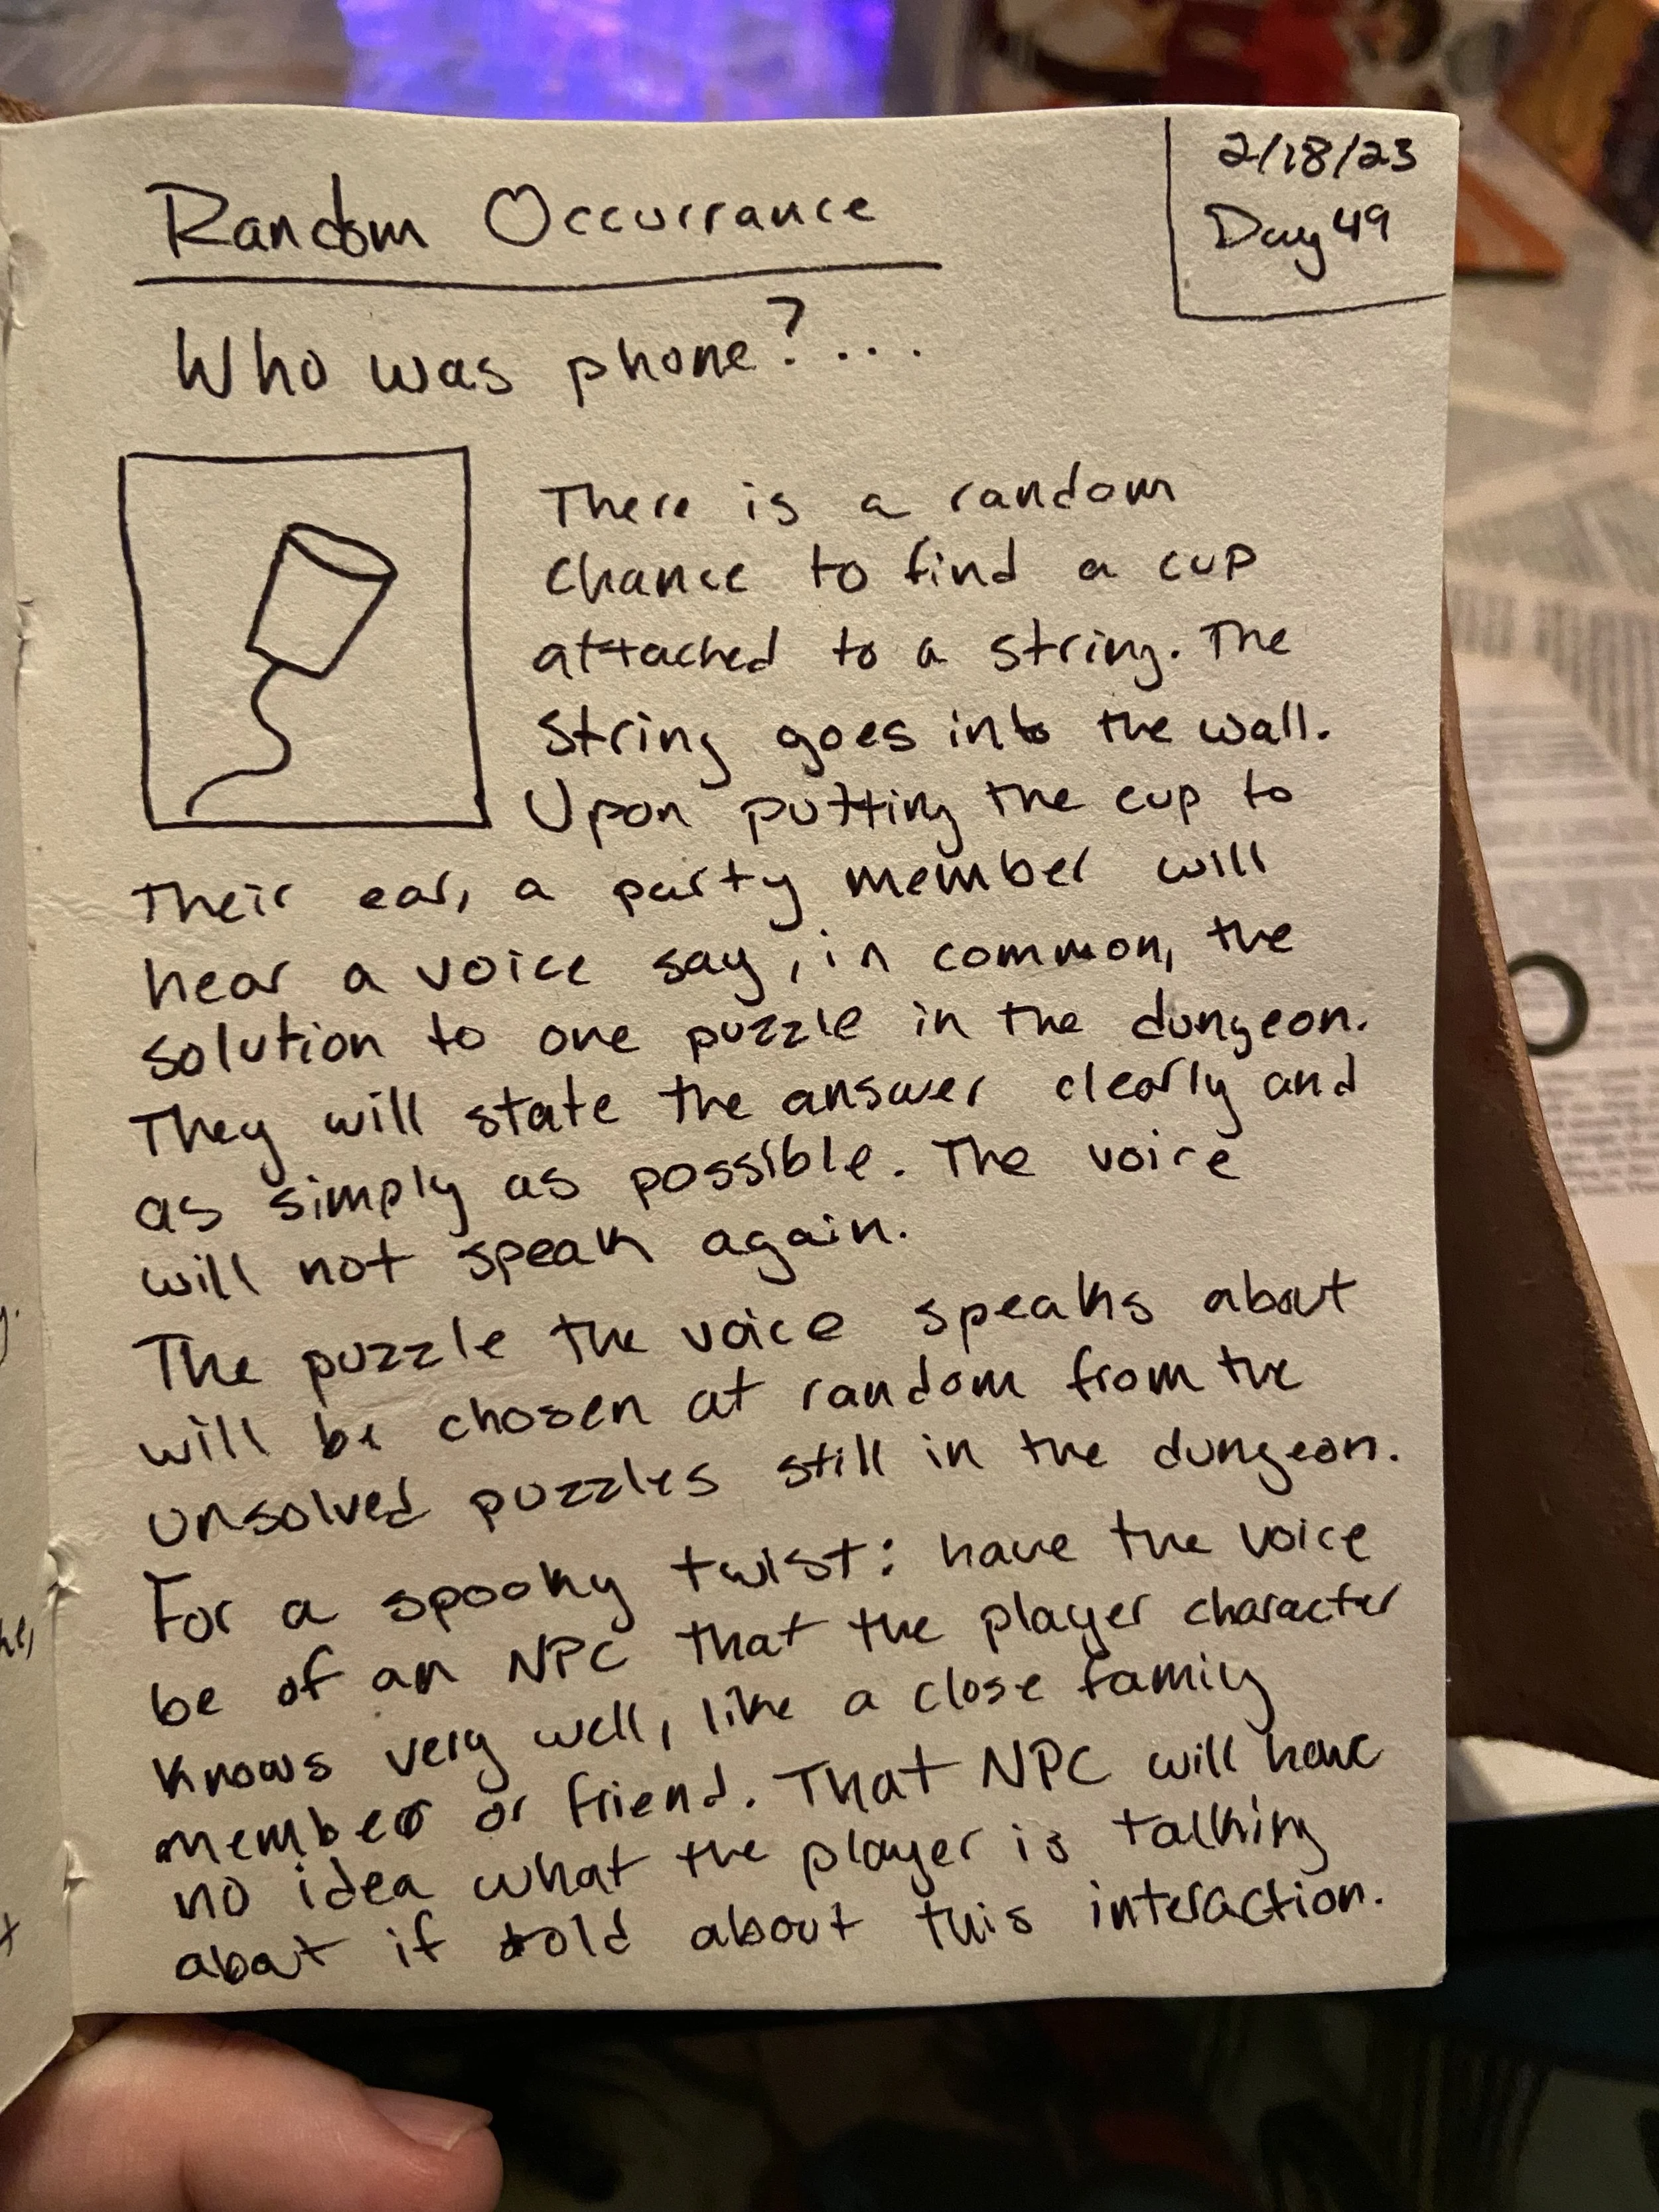 Random Occurrance
2/18/23
Day 49
Who was phone?...
There is a random
chance to find a cup
attached to a string. The
string goes into the wall.
Upon putting the cup to
their ear, a party member will
hear a voice say, in common, the
solution to one puzzle in the dungeon.
They will state the answer clearly and
as simply as possible. The voice
will not speak again.
The puzzle the voice speaks about
will be chosen at random from the
unsolved puzzles still in the dungeon.
For a spooky twist: have the voice
be of an NPC that the player character
knows very well, like a close family
member or friend. That NPC will have
no idea what the player is talking
about if told about this interaction.